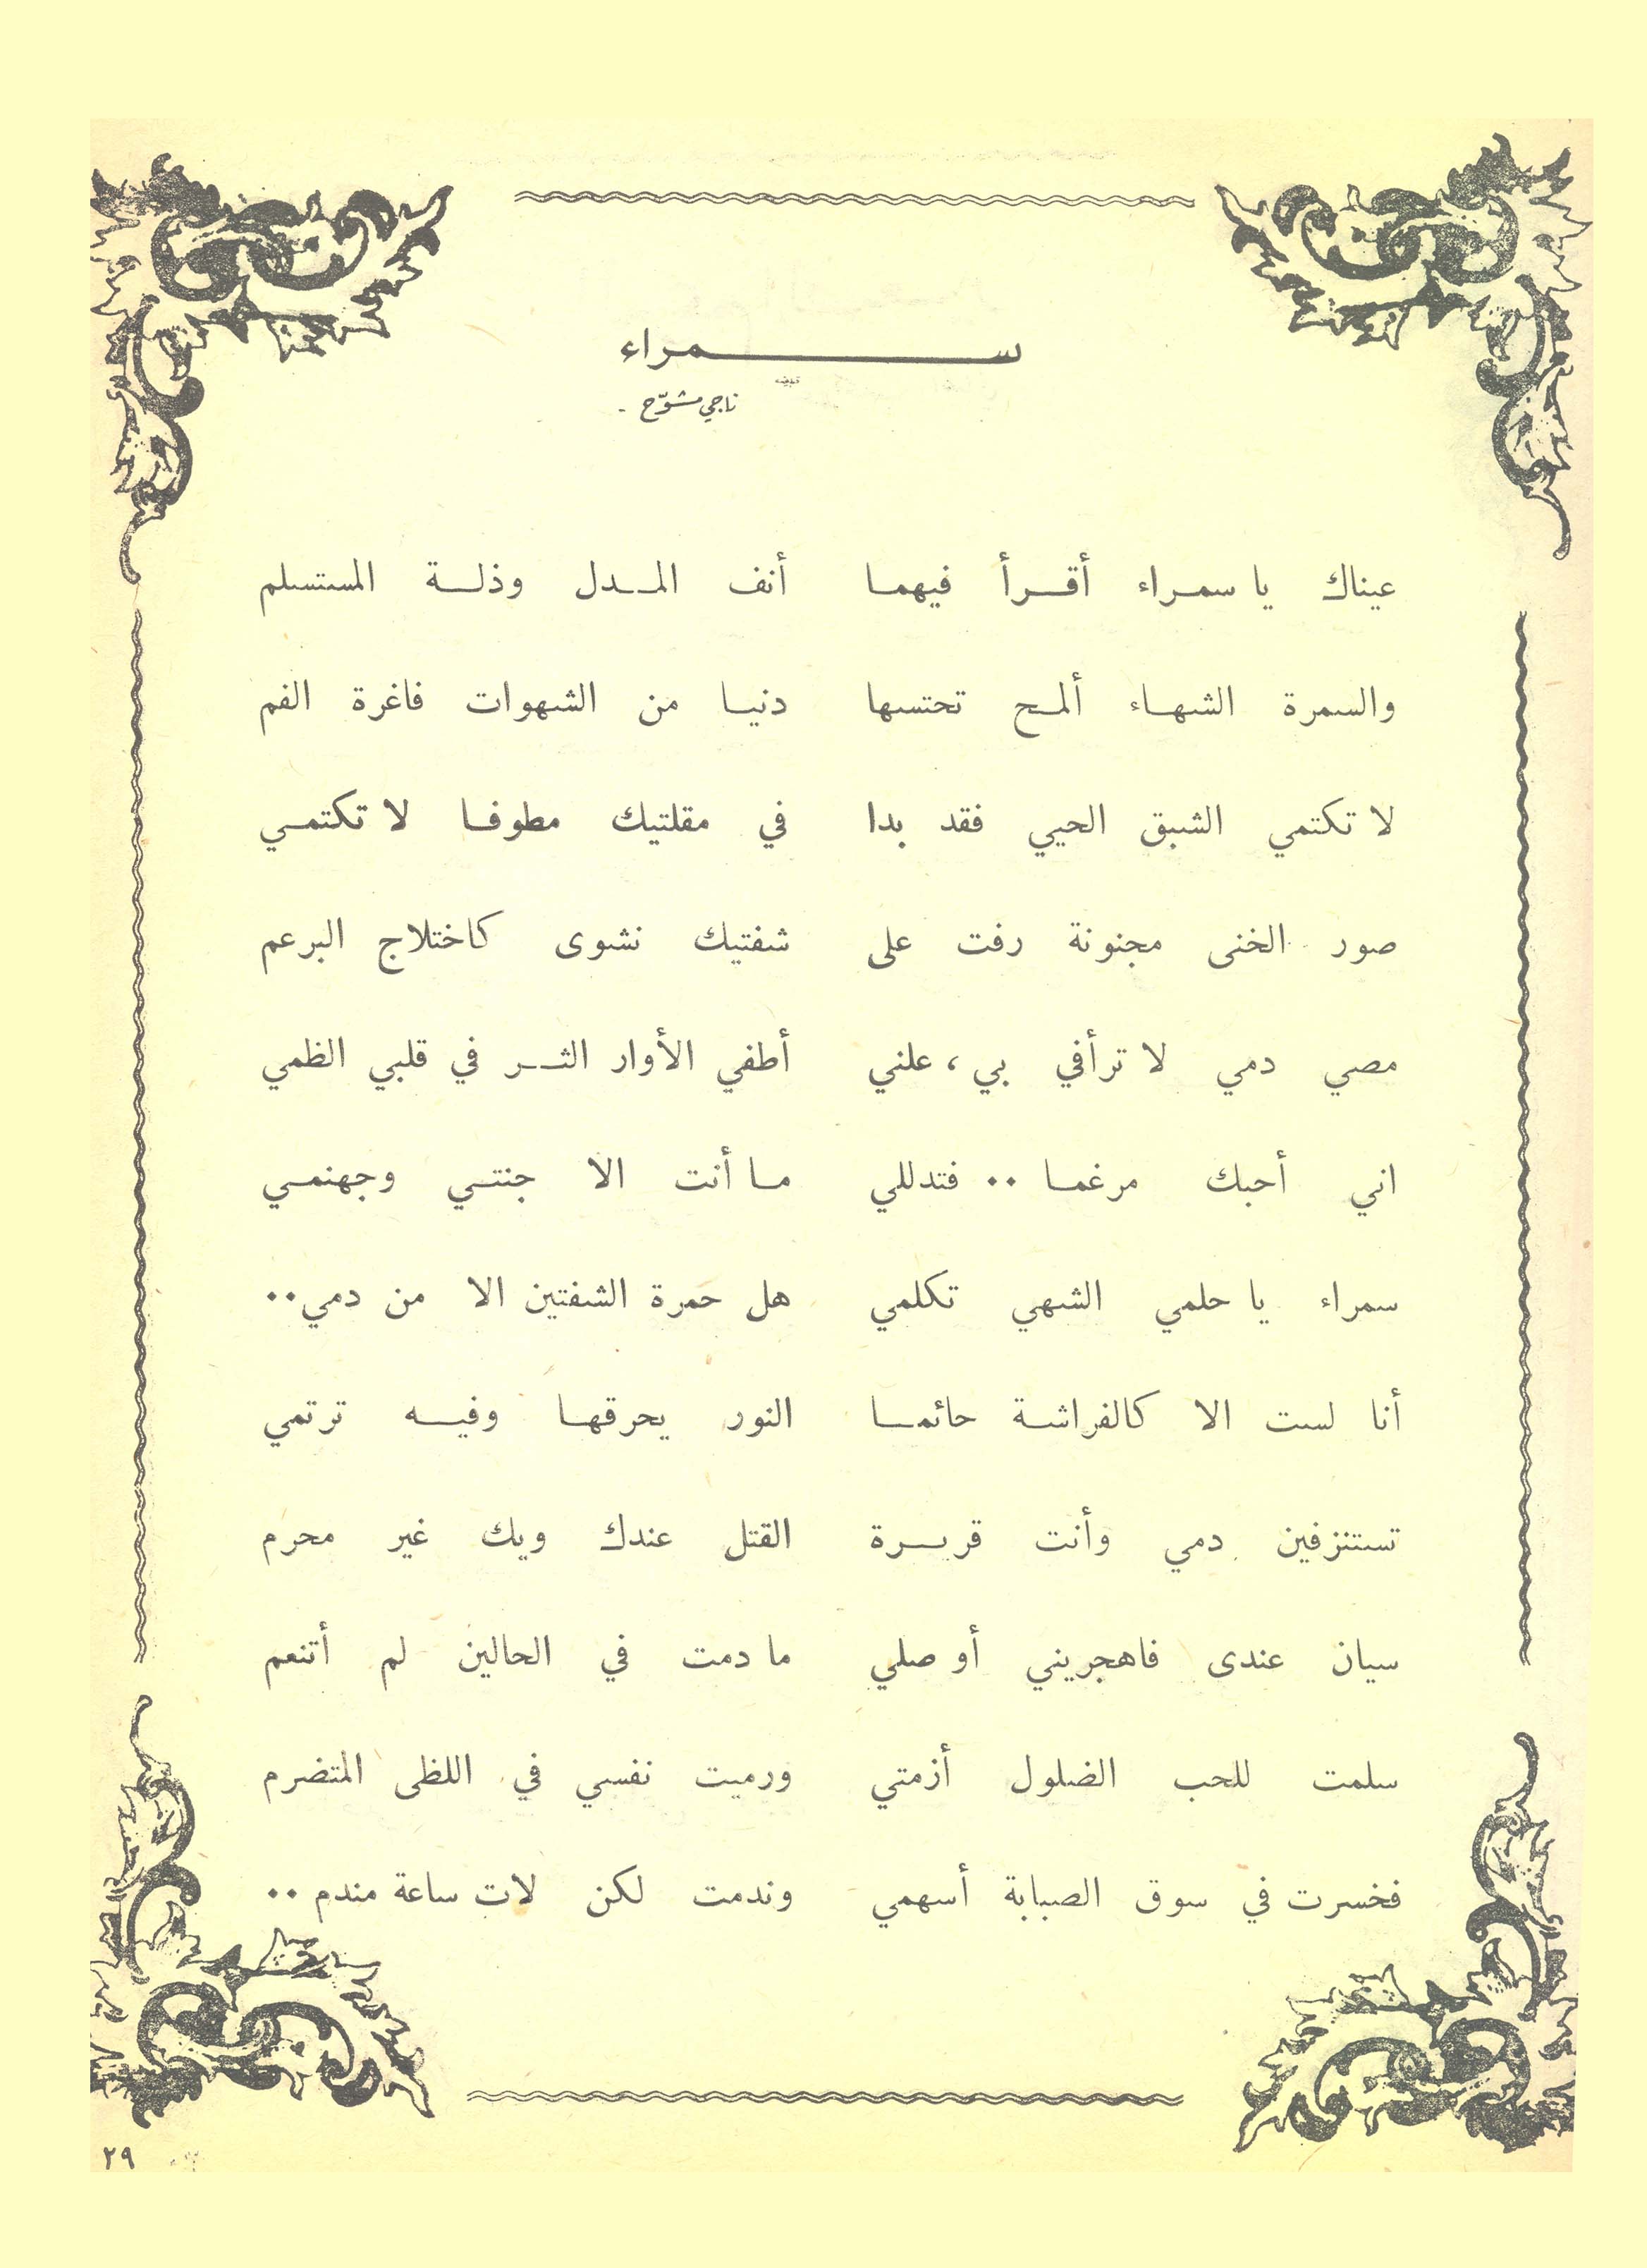 سمراء
ناجي مشوّح
عيناك يا سمراء أقرأ فيهما أنف المدل وذلة المستسلم
والسمرة الشهاء ألمح تحتسها دنيا من الشهوات فاغرة الفم
لا تكتمي الشبق الحيي فقد بدا في مقلتيك مطوفا لا تكتمي
صور الخنى مجنونة رفت على شفتيك نشوى كاختلاج البرعم
مصي دمي لا ترأفي بي ، علني أطفي الأوار الثر في قلبي الظمي
اني أحبك مرغما ٠٠ فتدللي ما أنت الا جنتي وجهنمي
سمراء يا حلمي الشهي تكلمي هل حمرة الشفتين الا من دمي٠٠
أنا لست الا كالفراشة حائما النور يحرقها وفيه ترتمي
تستنزفين دمي وأنت قريرة القتل عندك ويك غير محرم
سيان عندى فاهجريني أو صلي ما دمت في الحالين لم أتنعم
سلمت للحب الضلول أزمتي ورميت نفسي في اللظى المتضرم
فخسرت في سوق الصبابة أسهمي وندمت لكن لات ساعة مندم ٠٠
٢٩